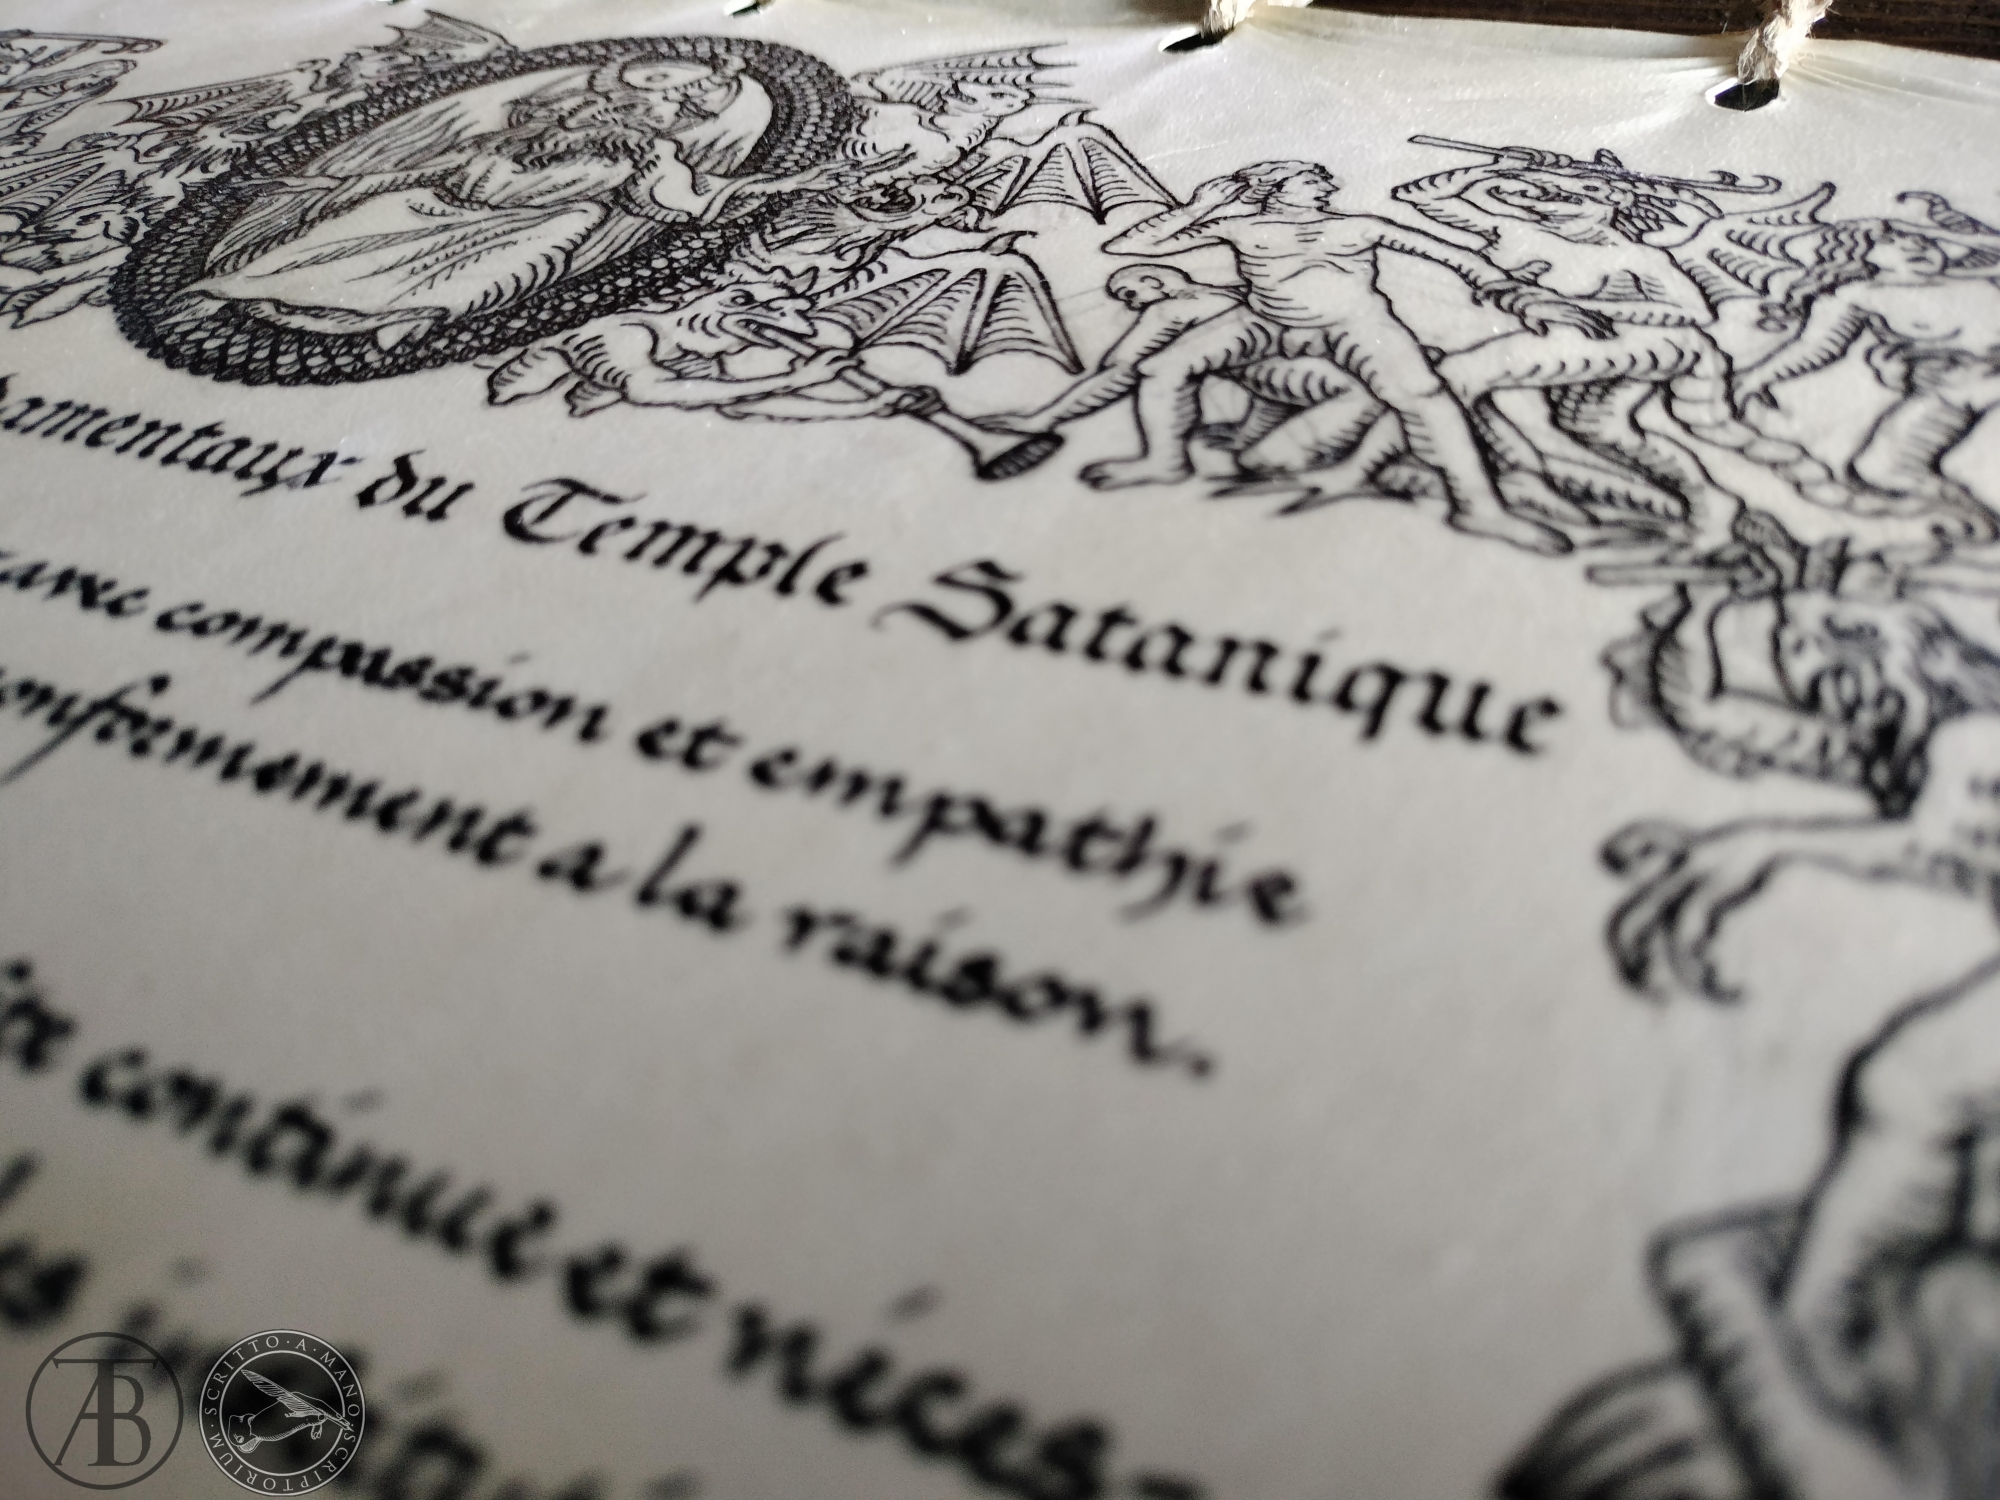 damentaux du Temple Satanique
avec compassion et empathie
conformement a la raison.
continue et néces-
les
TAB
SCRITTO·A·MANO·SCRIPTORIUM·